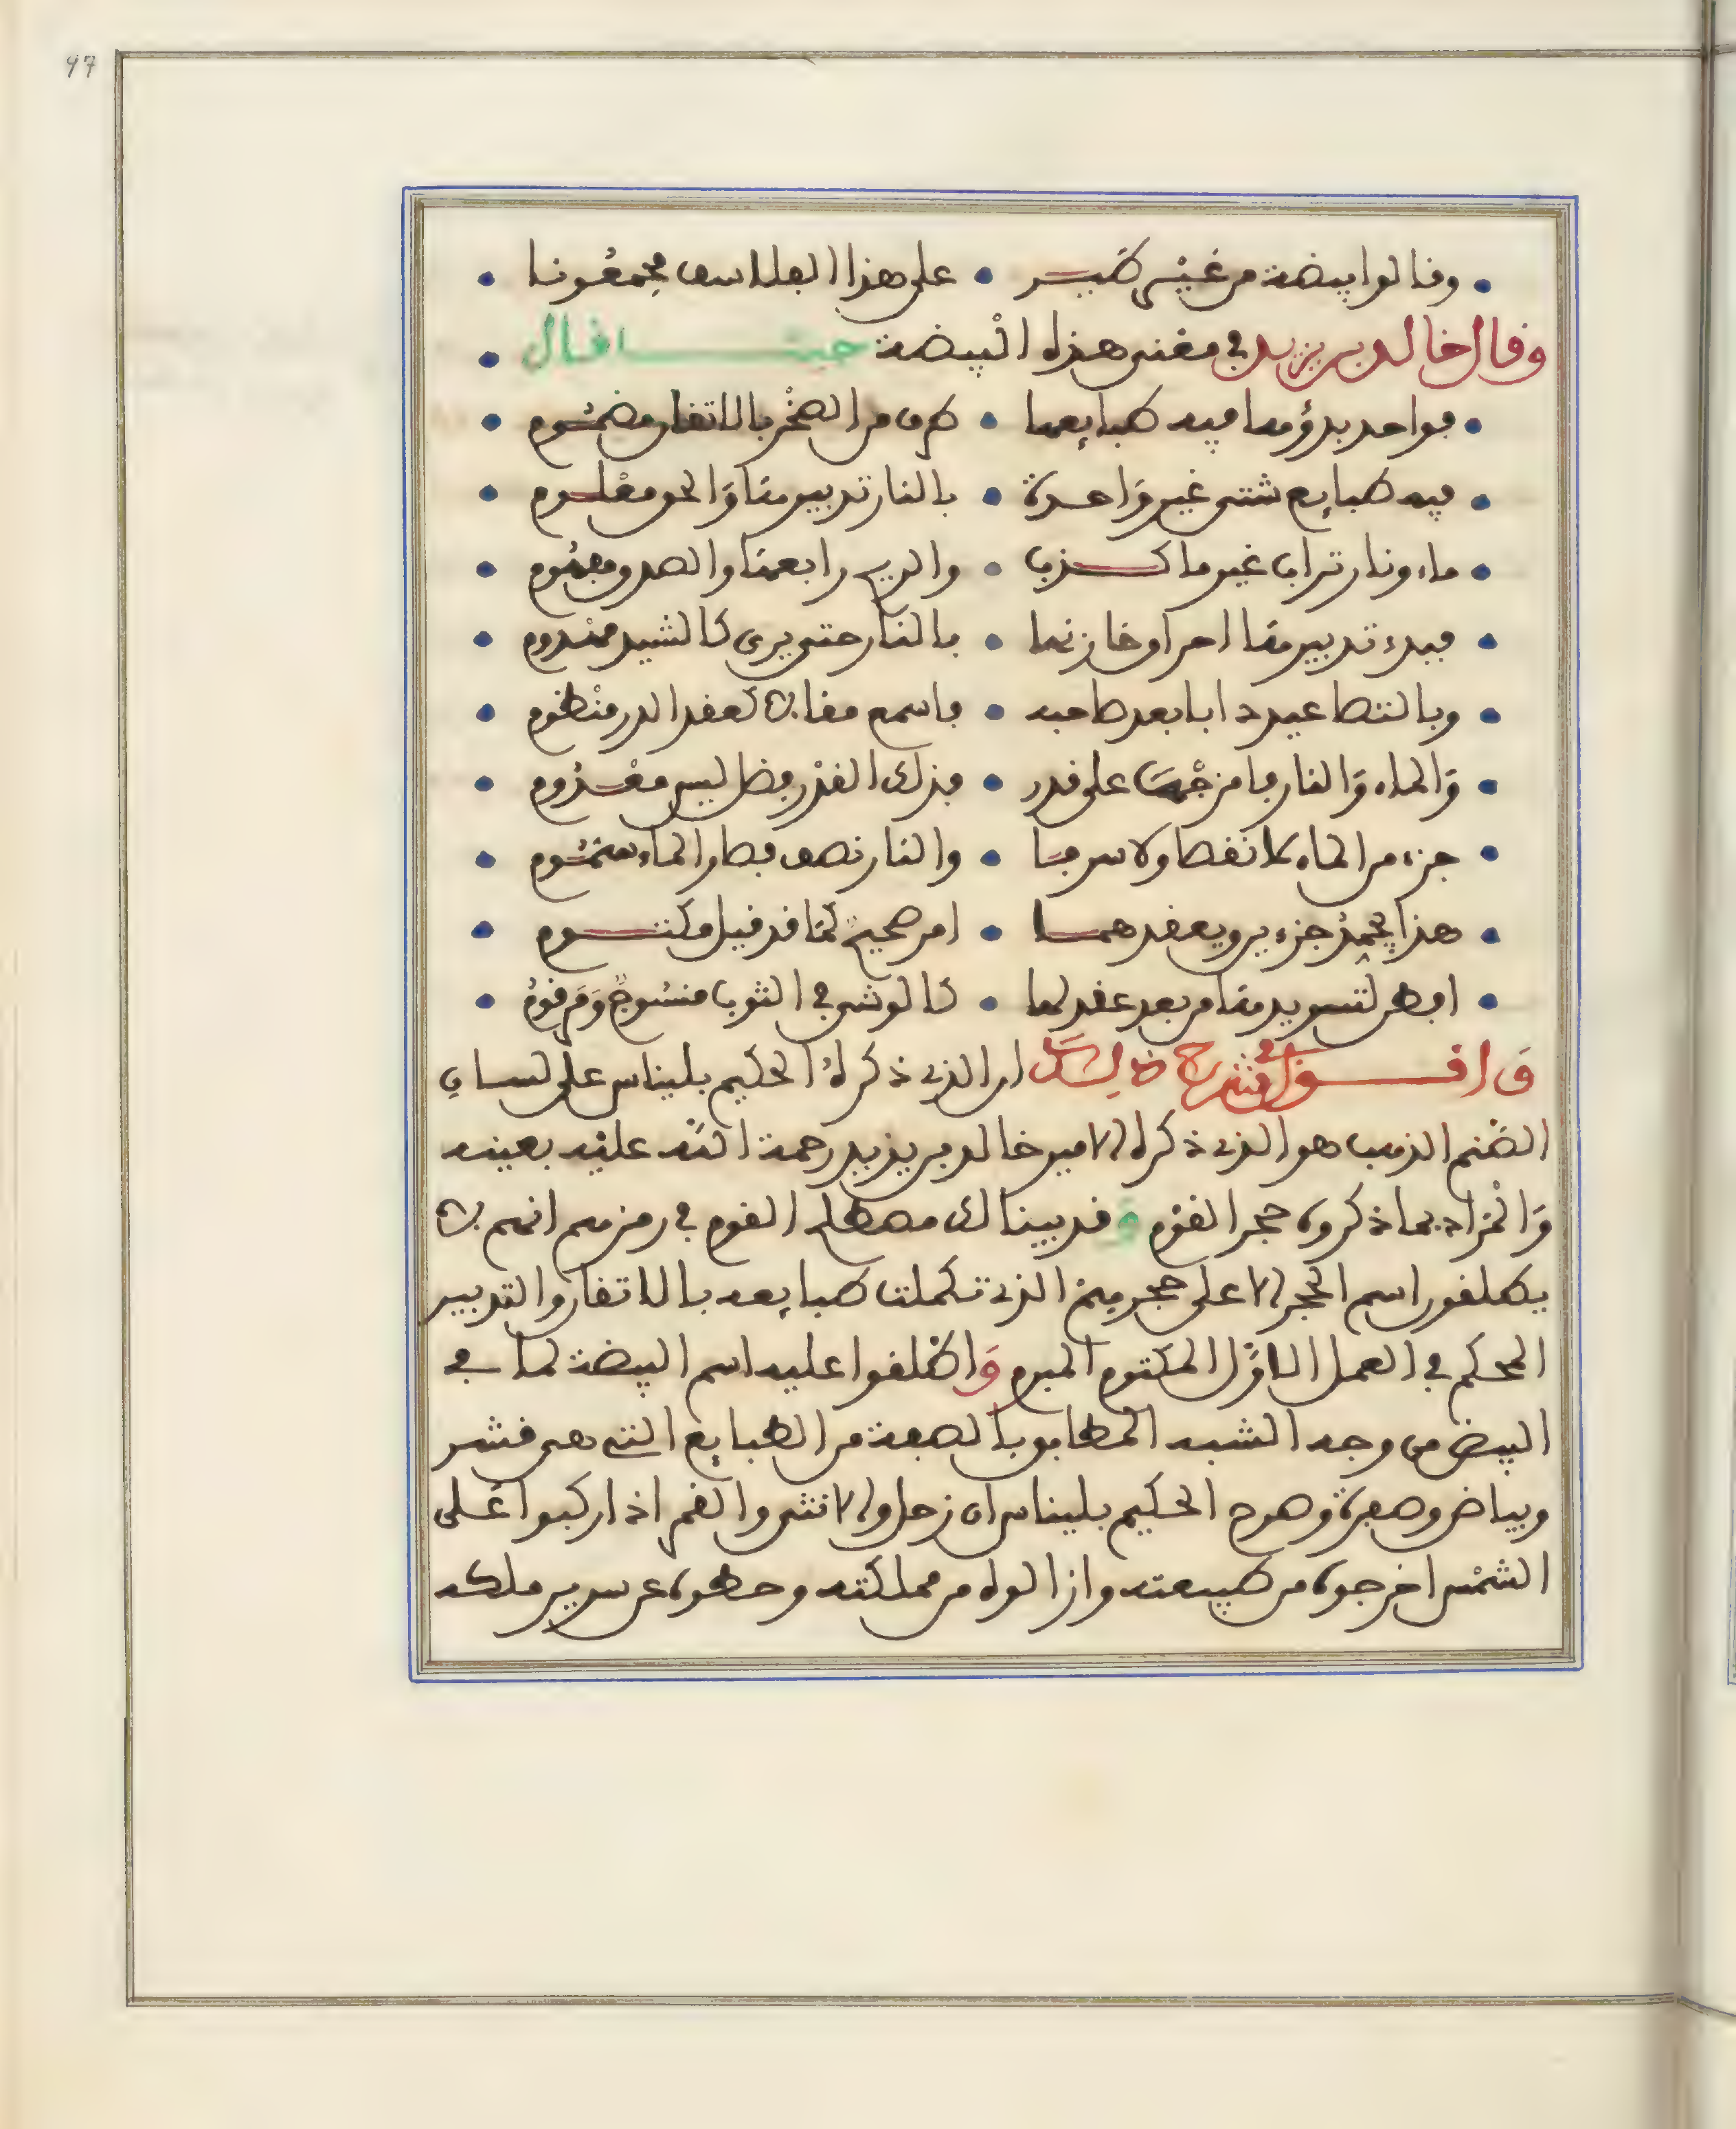 97
وقالوا بيضة من غير طير • على هذا الفلاسف مجمعونا
وقال خالد بن يزيد في معنى هذه البيضة حيث قال
فواحد بدؤه ما فيه طبايعها • طرف من الصخر بالاتقان مضموم
فيه طبايع شتى غير واحدة • بالنار تدبيرها والحق معلوم
ماء ونار تراب غير ما كذب • والريح رابعها والصدق مفهوم
فبدء تدبيرها احراق خازنها • بالنار حتى يرى كالشيد مهدوم
وبالتصاعيد دابا بعد صاحبه • فاسمع مقالا كعقد الدر منظوم
والماء والنار فامزجها على قدر • فذلك القدر فضل ليس معدوم
جزء من الماء لا نقصا ولا سرفا • والنار نصف فصار الماء
هذا يجمد جزءين ويعقدهما • امر صحيح كما قد قيل مكتوم
افطن لتسويدها من بعد عقد لها • كالوشي في الثوب منسوج ومرقوم
واقول في شرح ذلك ان الذي ذكره الحكيم بليناس على لسان
الصنم الذهب هو الذي ذكره الامير خالد بن يزيد رحمة الله عليه بعينه
والمراد بما ذكروه حجر القوم وقد بينا لك مصطلح القوم في رمزهم انهم لا
يطلقون اسم الحجر الا على حجرهم الذي تكملت طبايعه بالاتقان والتدبير
المحكم في العمل الاول المكتوم المبرم واطلقوا عليه اسم البيضة لما في
البيض من وجه الشبه المطابق بالصفة من الطبايع التي هي قشر
وبياض وصفرة وصرح الحكيم بليناس ان زحل والانثى والقمر اذا ركبوا على
الشمس اخرجوه من طبيعته وازالوه من مملكته وحطوه عن سرير ملكه